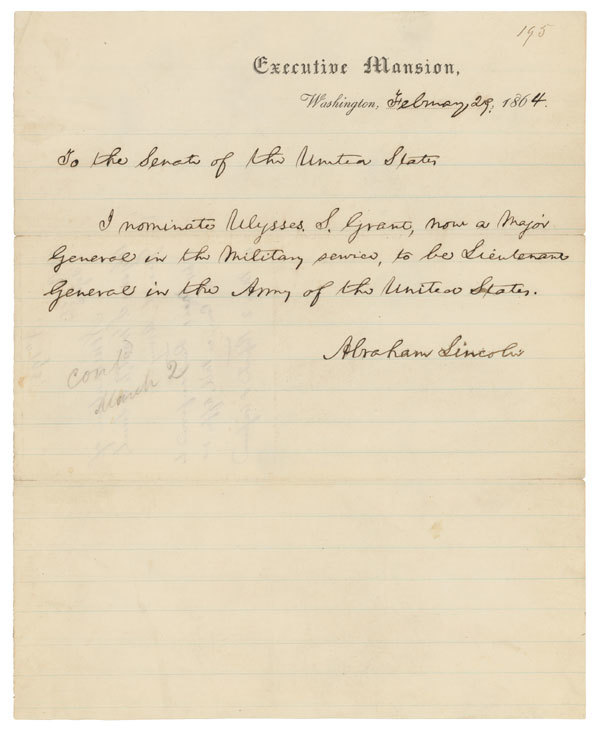 195
Executive Mansion,
Washington, February 29, 1864.
To the Senate of the United States
I nominate Ulysses. S. Grant, now a Major
General in the Military service, to be Lieutenant
General in the Army of the United States.
Abraham Lincoln
conf
March 2